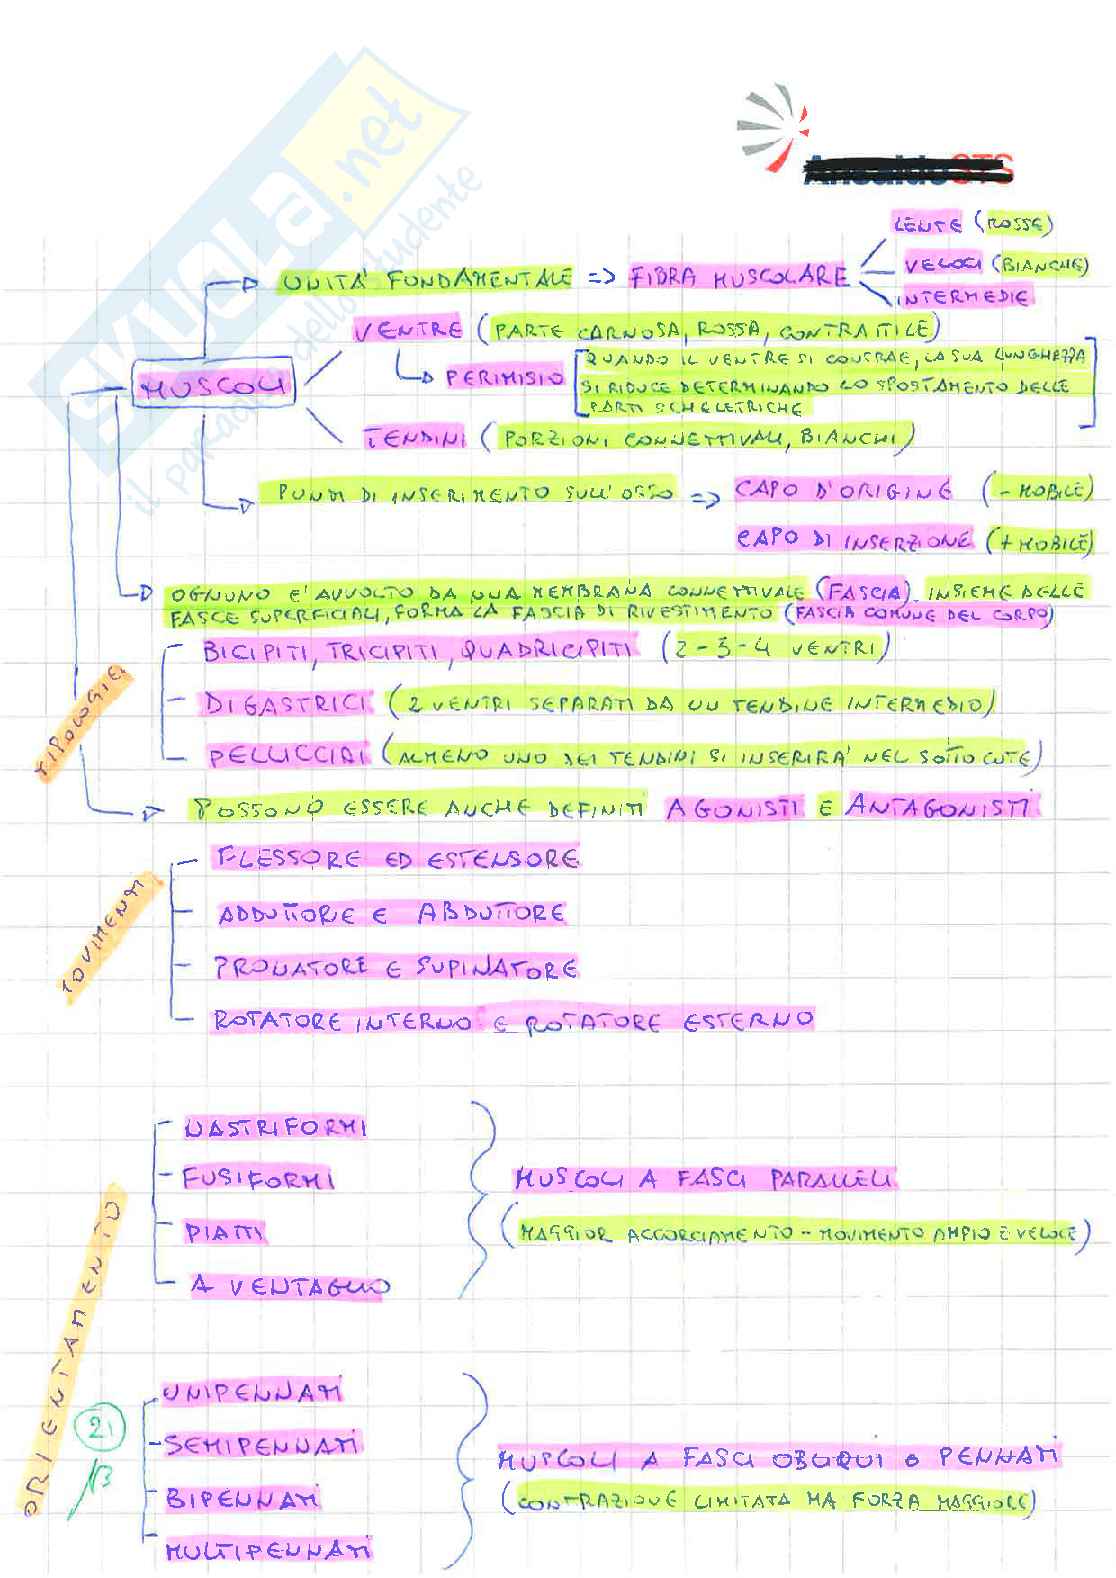 SKUOLA.net
il paradiso dello studente
LENTE (ROSSE)
UNITA' FONDAMENTALE => FIBRA MUSCOLARE
VELOCI (BIANCHE)
INTERMEDIE
VENTRE (PARTE CARNOSA, ROSSA, CONTRATTILE)
MUSCOLI
PERIMISIO [QUANDO IL VENTRE SI CONTRAE, LA SUA LUNGHEZZA
SI RIDUCE DETERMINANDO LO SPOSTAMENTO DELLE
PARTI SCHELETRICHE]
TENDINI (PORZIONI CONNETTIVALI, BIANCHI)
PUNTI DI INSERIMENTO SULL'OSSO => CAPO D'ORIGINE (- MOBILE)
CAPO DI INSERZIONE (+ MOBILE)
OGNUNO E' AVVOLTO DA UNA MEMBRANA CONNETTIVALE (FASCIA). INSIEME DELLE
FASCE SUPERFICIALI, FORMA LA FASCIA DI RIVESTIMENTO (FASCIA COMUNE DEL CORPO)
TIPOLOGIE
BICIPITI, TRICIPITI, QUADRICIPITI (2-3-4 VENTRI)
DIGASTRICI (2 VENTRI SEPARATI DA UN TENDINE INTERMEDIO)
PELLICCIAI (ALMENO UNO DEI TENDINI SI INSERIRA' NEL SOTTO CUTE)
POSSONO ESSERE ANCHE DEFINITI AGONISTI E ANTAGONISTI
MOVIMENTI
FLESSORE ED ESTENSORE
ADDUTTORE E ABDUTTORE
PRONATORE E SUPINATORE
ROTATORE INTERNO E ROTATORE ESTERNO
ORIENTAMENTO
NASTRIFORMI
FUSIFORMI
PIATTI
A VENTAGLIO
MUSCOLI A FASCI PARALLELI
(MAGGIOR ACCORCIAMENTO - MOVIMENTO AMPIO E VELOCE)
UNIPENNATI
SEMIPENNATI
BIPENNATI
MULTIPENNATI
MUSCOLI A FASCI OBLIQUI O PENNATI
(CONTRAZIONE LIMITATA MA FORZA MAGGIORE)